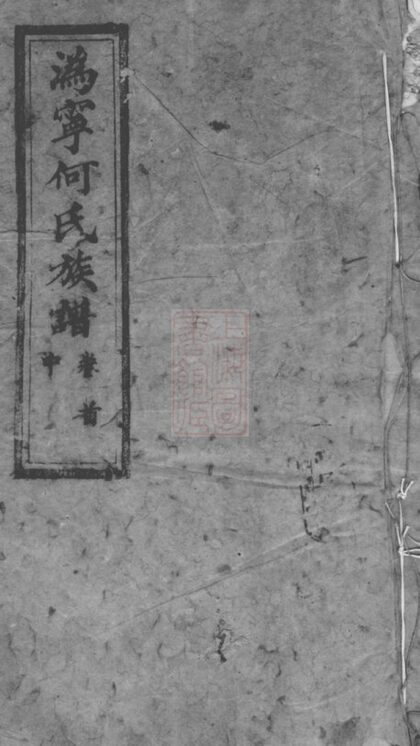 溈寧何氏族譜
卷首
中
上海圖書館藏